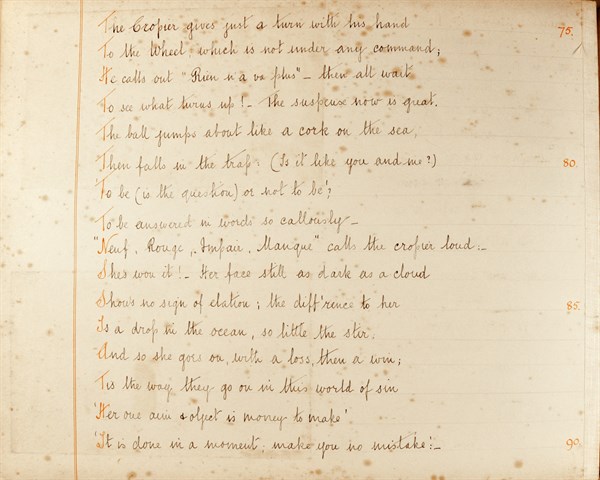 The Cropier gives just a turn with his hand 75.
To the Wheel: which is not under any command;
He calls out "Rien n'a va plus" – then all wait
To see what turns up! – The suspense now is great.
The ball jumps about like a cork on the sea,
Then falls in the trap: (Is it like you and me?) 80.
To be (is the question) or not to be';
To be answered in words so callously –
"Neuf, Rouge, Impair, Manque" calls the cropier loud: –
She's won it! – Her face still as dark as a cloud
Shows no sign of elation; the diff'rence to her 85.
Is a drop in the ocean, so little the stir.
And so she goes on, with a loss, then a win;
Tis the way they go on in this world of sin
'Her one aim & object is money to make'
'It is done in a moment: make you no mistake': – 90.